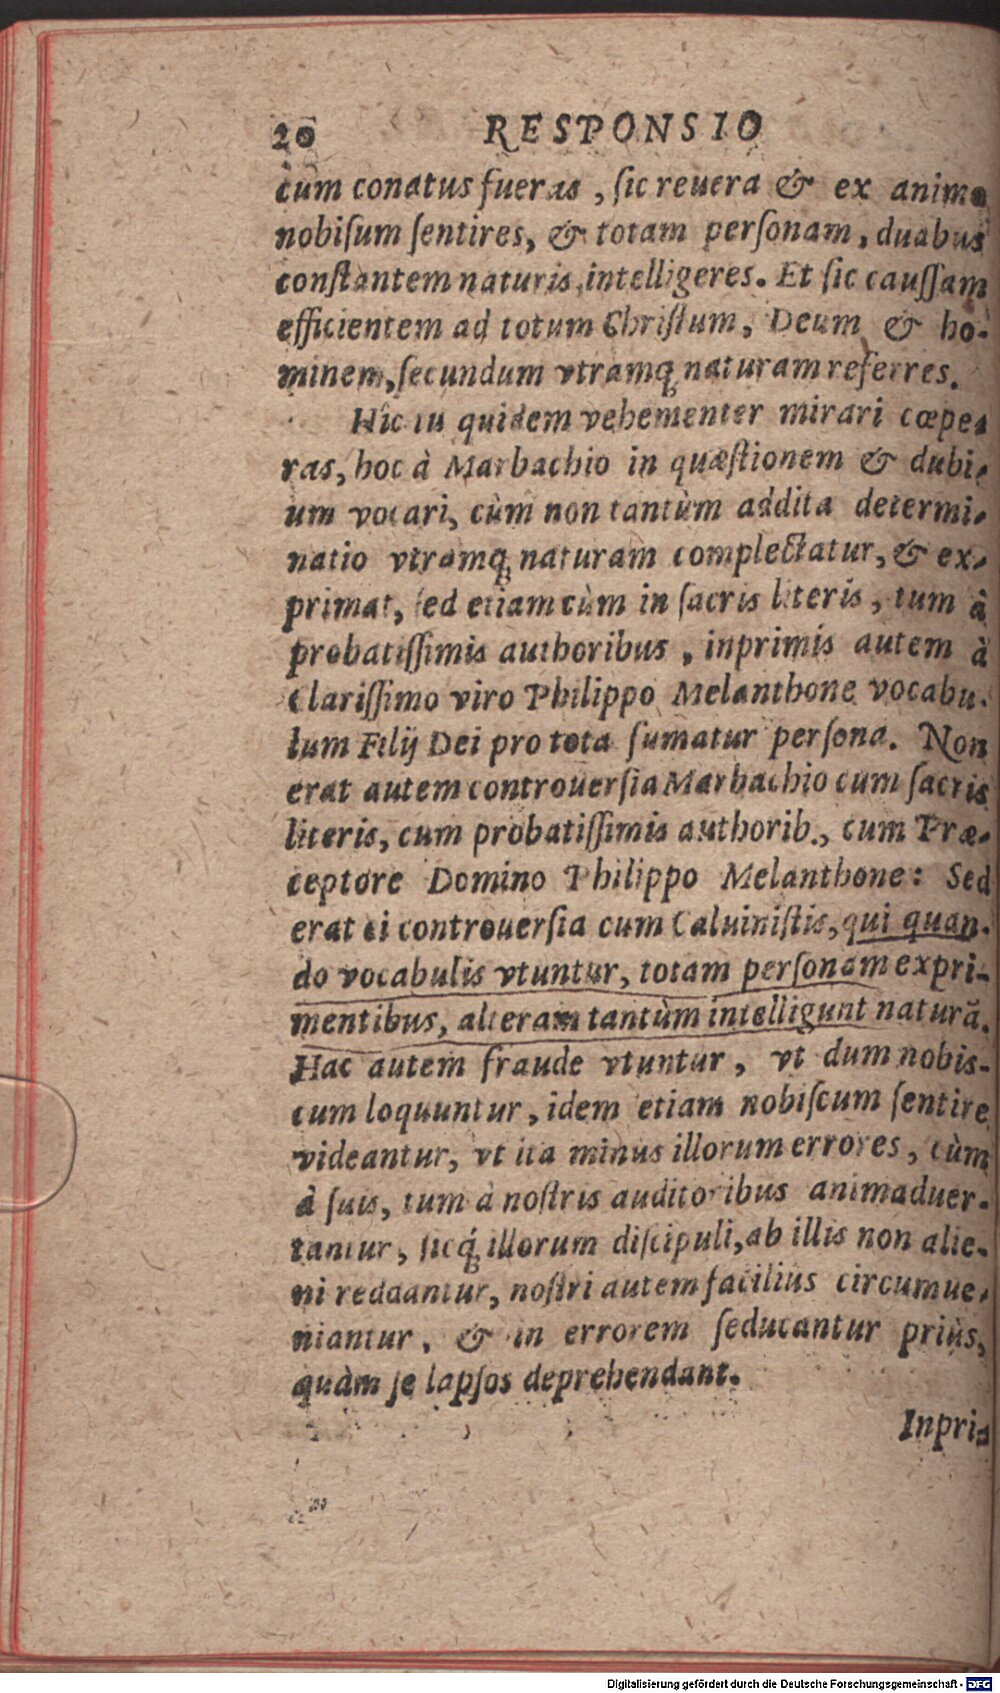 20 RESPONSIO
cum conatus fueras, ſic reuera & ex animo
nobiſum ſentires, & totam perſonam, duabus
conſtantem naturis, intelligeres. Et ſic cauſſam
efficientem ad totum Chriſtum, Deum & ho-
minem, ſecundum vtramq́ naturam referres.
Hîc tu quidem vehementer mirari cœpe-
ras, hoc à Marbachio in quæſtionem & dubi-
um vocari, cùm non tantùm addita determi-
natio vtramq́ naturam complectatur, & ex-
primat, ſed etiam cùm in ſacris literis, tum à
probatiſſimis authoribus, inprimis autem à
Clariſſimo viro Philippo Melanthone vocabu-
lum Filij Dei pro tota ſumatur perſona. Non
erat autem controuerſia Marbachio cum ſacris
literis, cum probatiſſimis authorib., cum Præ-
ceptore Domino Philippo Melanthone: Sed
erat ei controuerſia cum Caluiniſtis, qui quan-
do vocabulis vtuntur, totam perſonam expri-
mentibus, alteram tantùm intelligunt naturã.
Hac autem fraude vtuntur, vt dum nobis-
cum loquuntur, idem etiam nobiſcum ſentire
videantur, vt ita minus illorum errores, cùm
à ſuis, tum à noſtris auditoribus animaduer-
tantur, ſicq́ illorum diſcipuli, ab illis non alie-
ni reddantur, noſtri autem facilius circumue-
niantur, & in errorem ſeducantur priùs,
quàm ſe lapſos deprehendant.
Inpri-
Digitalisierung gefördert durch die Deutsche Forschungsgemeinschaft - DFG